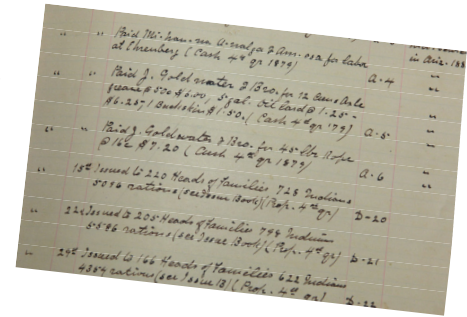 " " Paid Mi-han-na A-nalga & Am-osa for labor
at Ehrenberg (Cash 4th qr 1879) A-4
in Ariz. 188
" " Paid J. Goldwater & Bro. for 12 Axle
Grease @ 50¢ $6.00, 5 gal. Oil Lard @ 1.25 -
$6.25, 1 Buckskin $1.50. (Cash 4th qr '79) A-5
" " Paid J. Goldwater & Bro. for 45 lbs Rope
@ 16¢ $7.20 (Cash 4th qr 1879) A-6
15th Issued to 220 Heads of Families 728 Indians
5096 rations (see Issue Book) (Prop. 4th qr) D-20
" 22d Issued to 205 Heads of Families 798 Indians
5586 rations (see Issue Book) (Prop. 4th qr) D-21
" 29th Issued to 166 Heads of Families 622 Indians
4354 rations (see Issue B) (Prop. 4th qr) D-22